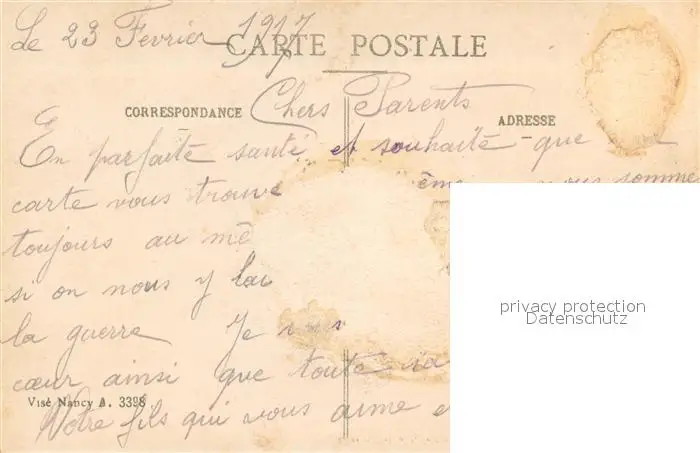 Le 23 Fevrier 1917
CARTE POSTALE
CORRESPONDANCE
Chers Parents
ADRESSE
En parfaite santé et souhaite que
carte vous trouve ême vous somme
toujours au mê
si on nous y lai
la guerre Je
cœur ainsi que toute
Visé Nancy A. 3398
Votre fils qui vous aime e
privacy protection
Datenschutz